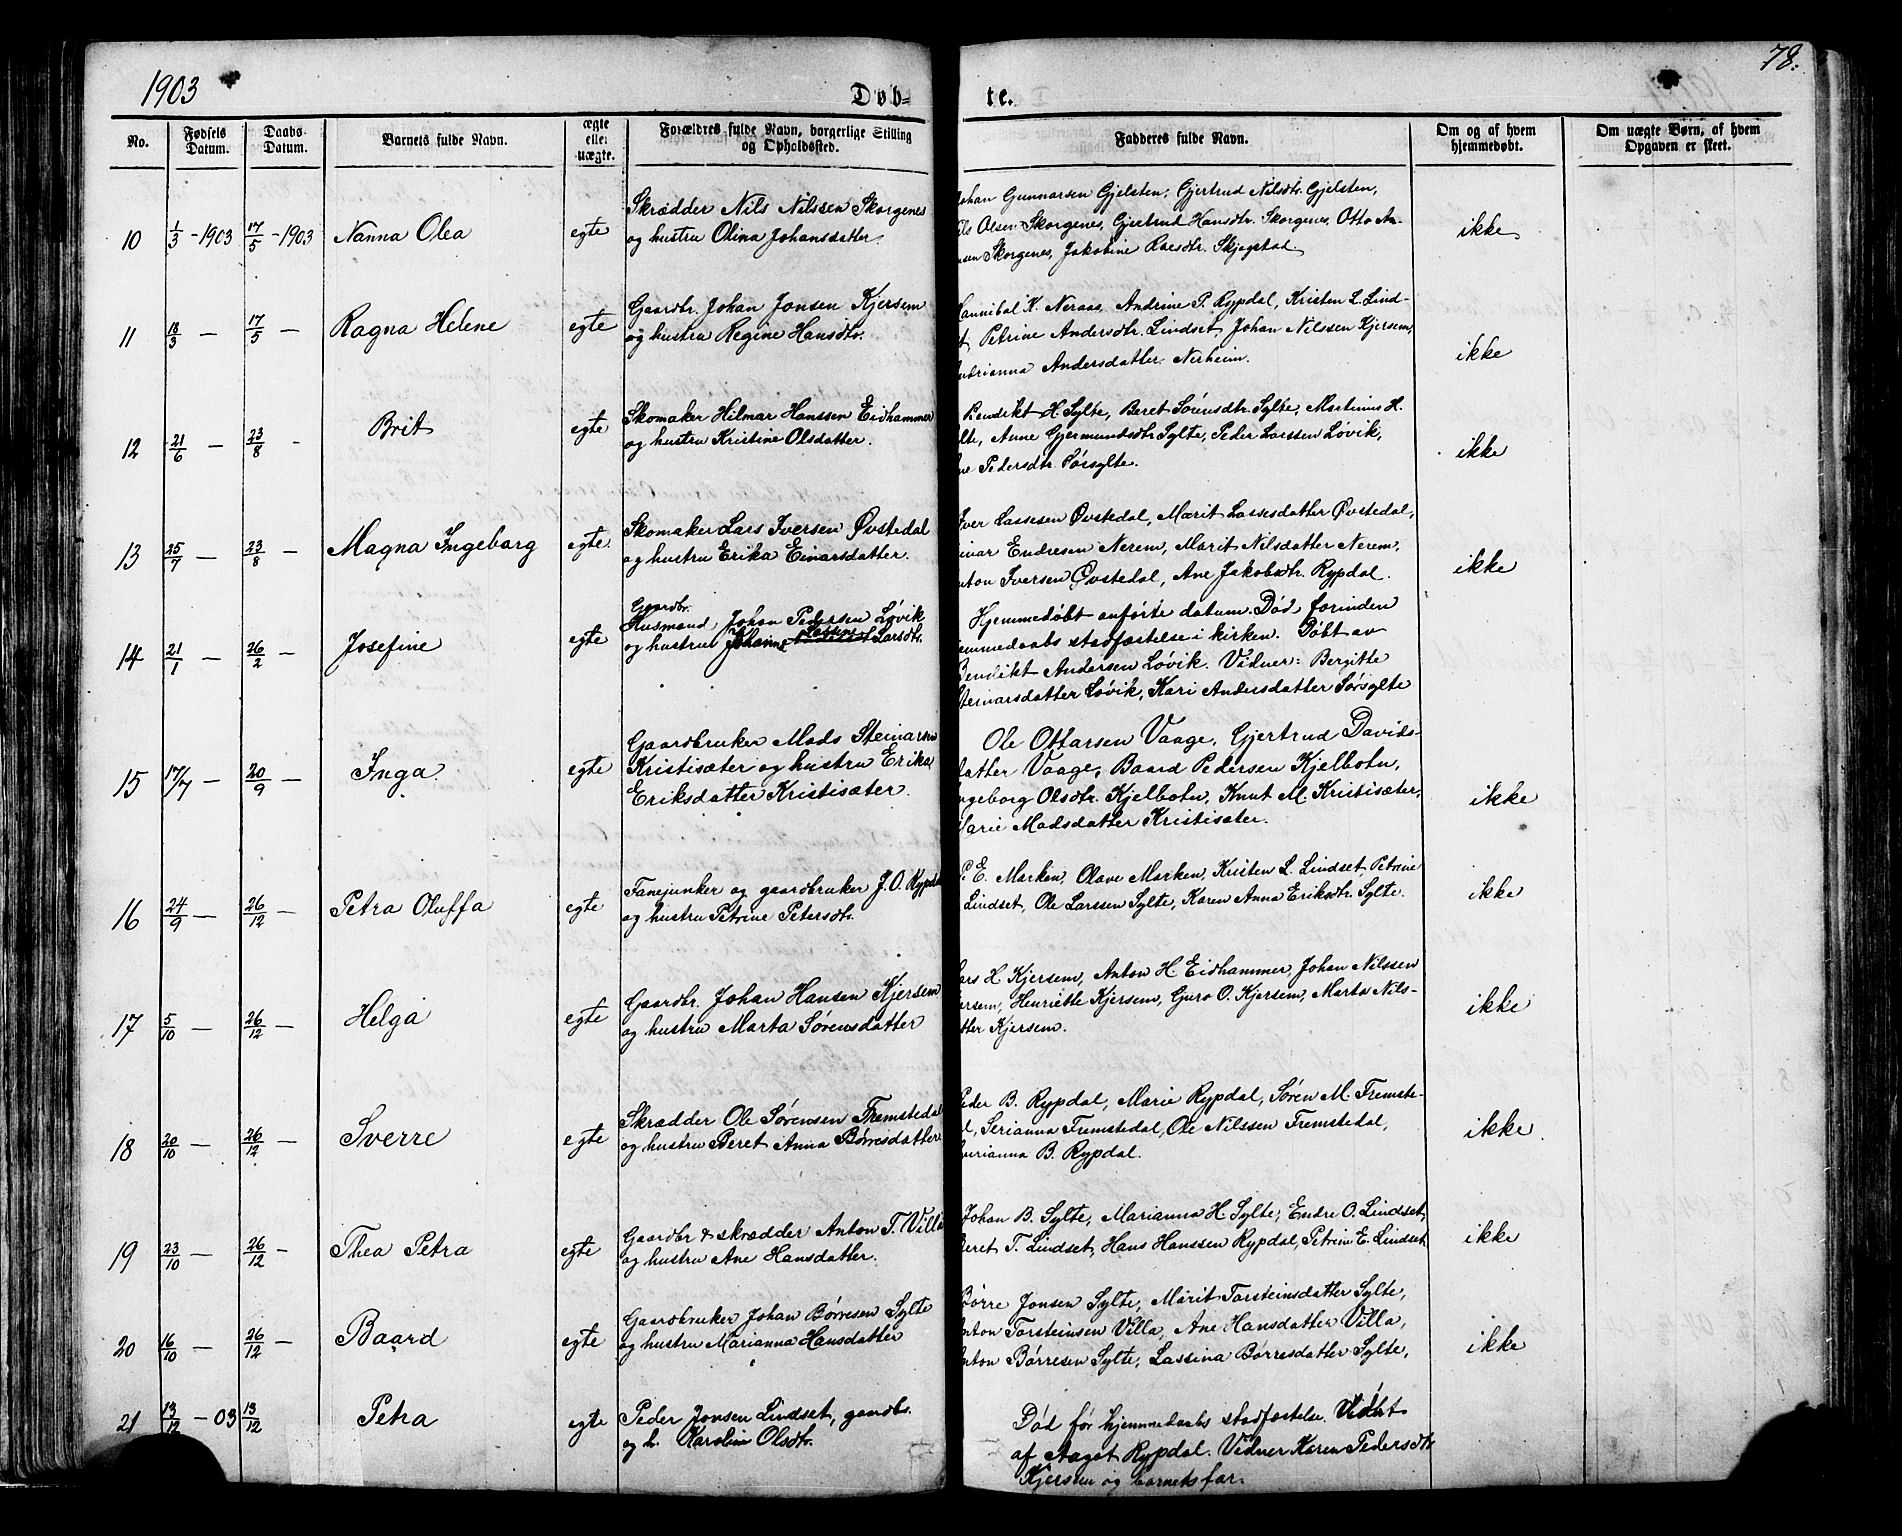 1903
78.
Døb=
te.
No.
Fødsels Datum.
Daabs- Datum.
Barnets fulde Navn.
ægte eller uægte.
Forældres fulde Navn, borgerlige Stilling
og Opholdssted.
Fadderes fulde Navn.
Om og af hvem
hjemmedøbt.
Om uægte Børn, af hvem
Opgaven er skeet.
10 1/3 - 1903 17/5 - 1903 Nanna Olea egte
Skrædder Nils Nilssen Skorgenes
og hustru Olina Johansdatter.
Johan Gunnarsen Gjelsten, Gjertrud Nilsdtr. Gjelsten,
Olsen Skorgenes, Gjertrud Hansdtr. Skorgenes, Otto An-
sen Skorgenes, Jakobine Skjegstad
ikke
11 18/3 — 17/5 — Ragna Helene egte
Gaardbr. Johan Jonsen Kjersem
og hustru Regine Hansdtr.
Hannibal K. Neraas, Andrine P. Rypdal, Kristen L. Lind-
t, Petrine Andersdtr. Lindset, Johan Nilssen Kjersem,
Andrianna Andersdatter Nerheim.
ikke
12 21/6 — 23/8 - Brit egte
Skomaker Hilmar Hanssen Eidhammer
og hustru Kristine Olsdatter.
Bendikt H. Sylte, Beret Sørensdtr. Sylte, Martinus H.
lte, Anne Gjermundsdtr. Sylte, Peder Larssen Løvik,
ne Pedersdtr. Sørsylte.
ikke
13 25/7 — 23/8 — Magna Ingeborg egte
Skomaker Lars Iversen Øvstedal
og hustru Erika Einarsdatter.
Iver Lassesen Øvstedal, Marit Lassesdatter Øvstedal,
inar Endresen Nerem, Marit Nilsdatter Nerem,
nton Iversen Øvstedal, Ane Jakobsdtr. Rypdal.
ikke
14 21/1 — 26/2 — Josefine egte
Gaardbr.
Husmand, Johan Pedersen Løvik
og hustru Johanne Larsdtr.
Hjemmedøbt anførte datum. Død forinden
jemmedaabs stadfæstelse i kirken. Døbt av
Bendikt Andersen Løvik. Vidner: Bergitte
Steinarsdatter Løvik, Kari Andersdatter Sørsylte
15 17/7 — 20/9 — Inga egte
Gaardbruker Mads Steinarsen
Kristisæter og hustru Erika
Eriksdatter Kristisæter.
Ole Ottarsen Vaage, Gjertrud Davids-
datter Vaage, Baard Pedersen Kjelbotn,
ngeborg Olsdtr. Kjelbotn, Knut M. Kristisæter,
Marie Madsdatter Kristisæter.
ikke
16 24/9 — 26/12 — Petra Oluffa egte
Fanejunker og gaardbruker J. O. Rypdal
og hustru Petrine Petersdtr.
P. E. Marken, Olave Marken, Kristen L. Lindset, Petrine
Lindset, Ole Larssen Sylte, Karen Anna Eriksdtr. Sylte.
ikke
17 5/10 — 26/12 — Helga egte
Gaardbr. Johan Hansen Kjersem
og hustru Marta Sørensdatter
Lars H. Kjersem, Anton H. Eidhammer, Johan Nilssen
jersem, Henriette Kjersem, Guro O. Kjersem, Marta Nils-
atter Kjersem.
ikke
18 20/10 — 26/12 — Sverre egte
Skrædder Ole Sørensen Fremstedal
og hustru Beret Anna Børresdatter
Peder B. Rypdal, Marie Rypdal, Søren M. Fremste-
l, Serianna Fremstedal, Ole Nilssen Fremstedal,
B. Rypdal.
ikke
19 23/10 — 26/12 — Thea Petra egte
Gaardbr & skrædder Anton T. Villa
og hustru Ane Hansdatter.
Johan B. Sylte, Marianna H. Sylte, Endre O. Lindset,
Beret T. Lindset, Hans Hanssen Rypdal, Petrine E. Lindset
ikke
20 16/10 — 26/12 — Baard egte
Gaardbruker Johan Børresen Sylte
og hustru Marianna Hansdatter
Børre Jonsen Sylte, Marit Torsteinsdatter Sylte,
Anton Torsteinsen Villa, Ane Hansdatter Villa,
Anton Børresen Sylte, Lassina Børresdatter Sylte,
ikke
21 13/12 — 03 13/12 Petra egte
Peder Jonsen Lindset, gaardbr.
og h. Karolin Olsdtr.
Død før hjemmedaabs stadfæstelse.
af Aagot Rypdal. Vidner Karen Pedersdtr
Kjersem og barnets far.